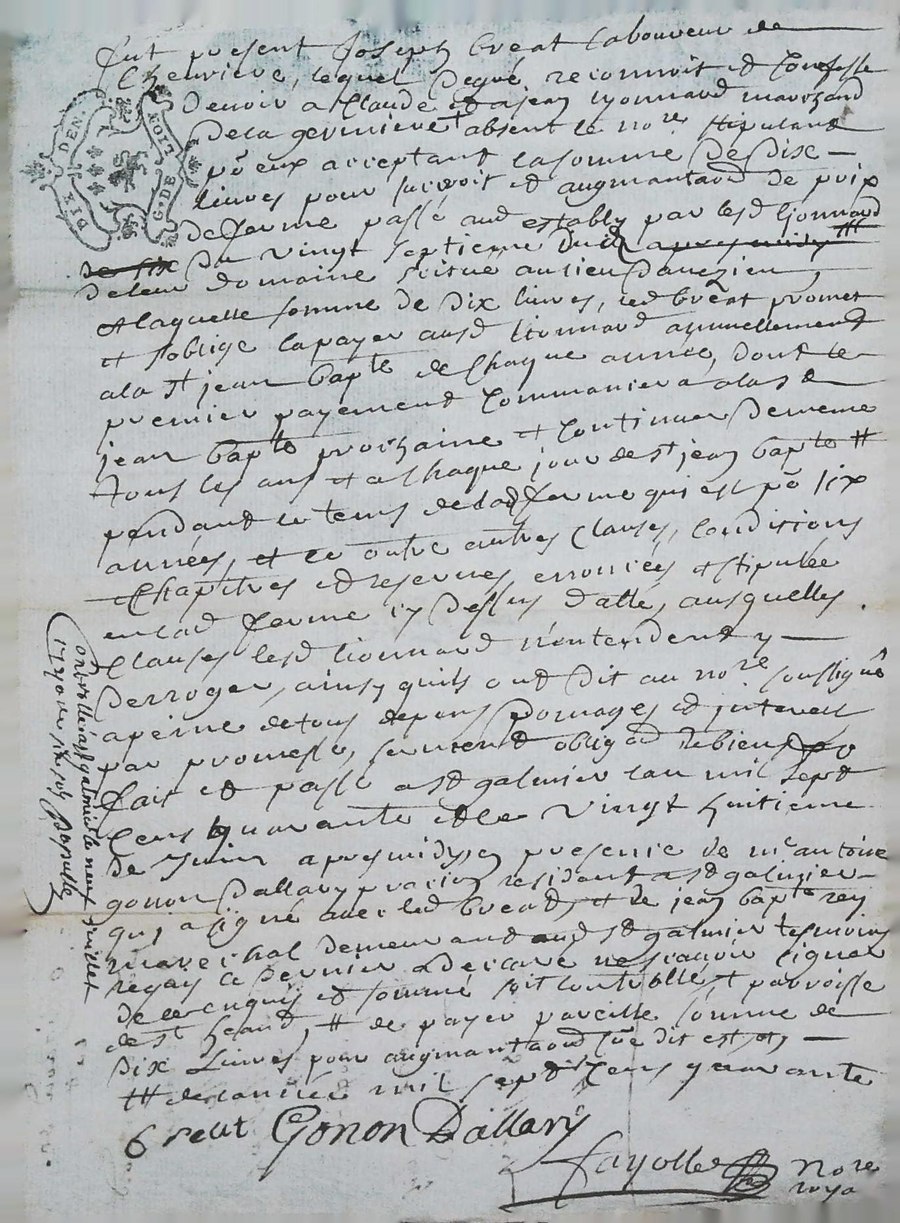 fut present Joseph breat laboureur de
Chenviere, lequel de gré, reconnoit et confesse
devoir a Claude et a jean lyonnard marchand
de la gevriniere + absent le nore stipulant
po eux acceptant la somme de dix
livres pour surcroit et augmantaon de prix
de ferme passé aud estably par lesd lionnard
du vingt septieme
de leur domaine scitué au lieu
et laquelle somme de dix livres, led breat promet
et s'oblige la payer ausd lionnard annuellement
a la st jean bapte de chaque année, dont le
premier payement commancera a la st
jean bapte prochaine et continuer de meme
tous les ans et a chaque jour de st jean bapte #
pendant le tems de lad ferme qui est po six
années, et ce outre autres clauses, conditions
chapitres et reserves, enoncées et stipulée
en lad ferme cy dessus datte, ausquelles
clauses lesd lionnard n'entendent y
derroger, ainsy quils ont dit au nore soussigné
a peine de tous depens domages et interest
par promesse, serment obligaon de biens
fait et passé a st galmier lan mil sept
cens quarante et le vingt huitieme
de Juin apres midy en presence de mre antoine
gonon Dallary residant a st galmier
qui a signé avec led breat, et de jean bapte rey
marechal demeurant aud st galmier tesmoins
ce dernier a declaré ne scavoir signer
de ce enquis et sommé soit controllé + parroisse
de st heand, # de payer pareille somme de
dix livres pour augmantaon co dit est
### de lannée mil sept cens quarante
DIX DEN.
G. DE NOIT
controllé a st galmier le neuf Juillet
1740
breat Gonon Dallary
fayolle nore
roya